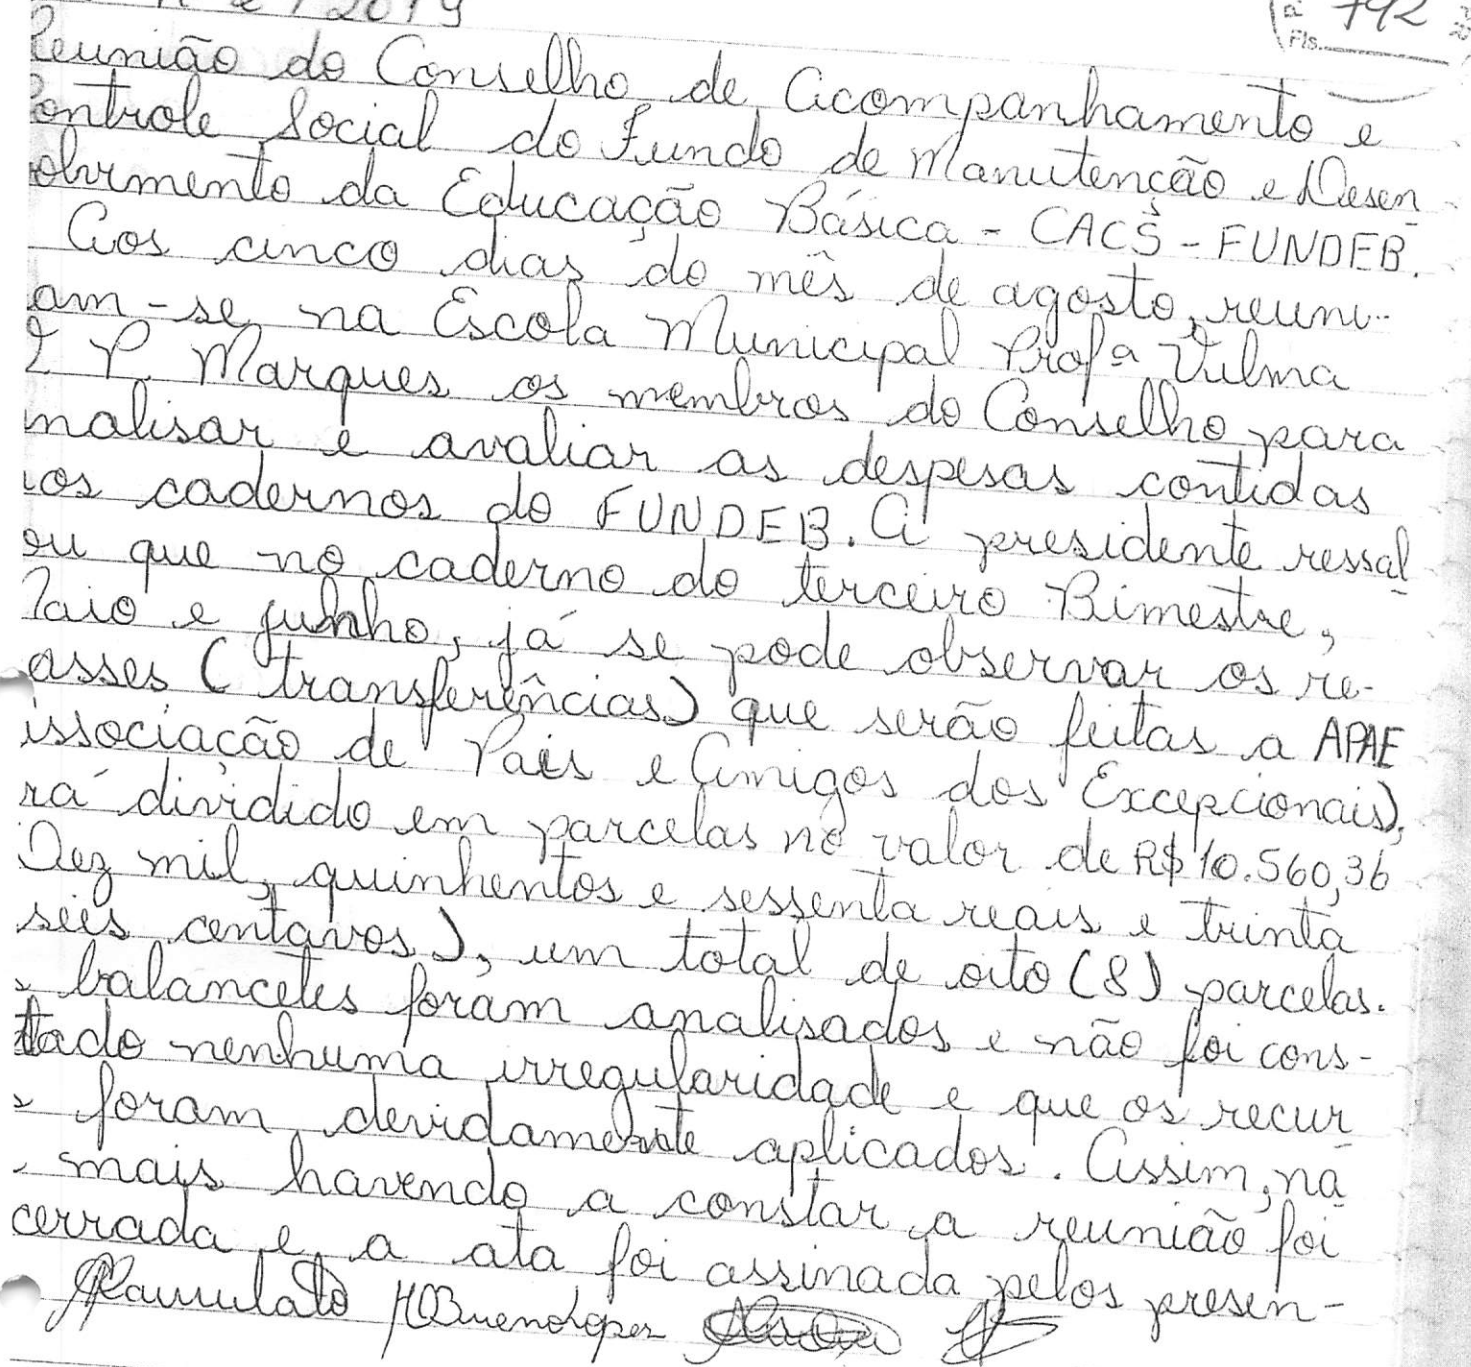 nº 2 / 2019
Fls. 792
Reunião do Conselho de Acompanhamento e
Controle Social do Fundo de Manutenção e Desen
volvimento da Educação Básica - CACS - FUNDEB.
Aos cinco dias do mês de agosto, reuni-
am-se na Escola Municipal Profª Vilma
P. Marques os membros do Conselho para
nalisar e avaliar as despesas contidas
nos cadernos do FUNDEB. A presidente ressal
ou que no caderno do terceiro Bimestre,
Maio e junho, já se pode observar os re-
asses (transferências) que serão feitas a APAE
Associação de Pais e Amigos dos Excepcionais),
rá dividido em parcelas no valor de R$ 10.560,36
Dez mil, quinhentos e sessenta reais e trinta
seis centavos), um total de oito (8) parcelas.
s balancetes foram analisados e não foi cons-
tado nenhuma irregularidade e que os recur
s foram devidamente aplicados. Assim, na
mais havendo a constar a reunião foi
cerrada e a ata foi assinada pelos presen-
HQBuenoLopes